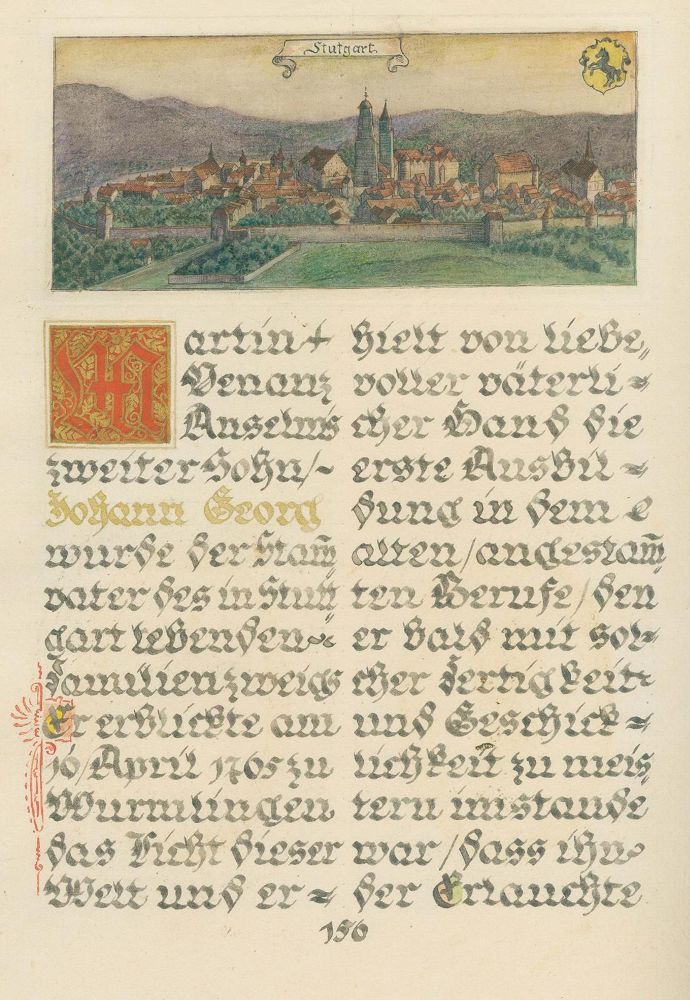 Stutgart
Martin
Venanz
Anselms
zweiter Sohn/
Johann Georg
wurde der Stam̅
vater des in Stutt
gart lebenden
Familienzweigs
Er erblickte am
16/April 1765 zu
Wurmlingen
das Licht dieser
Welt und er=
hielt von liebe„
voller väterli=
cher Hand die
erste Ausbil=
dung in dem
alten/angestam̅
ten Berufe/den
er bald mit sol=
cher Fertigkeit
und Geschick=
lichkeit zu meis
tern imstande
war/dass ihn
der Erlauchte
156